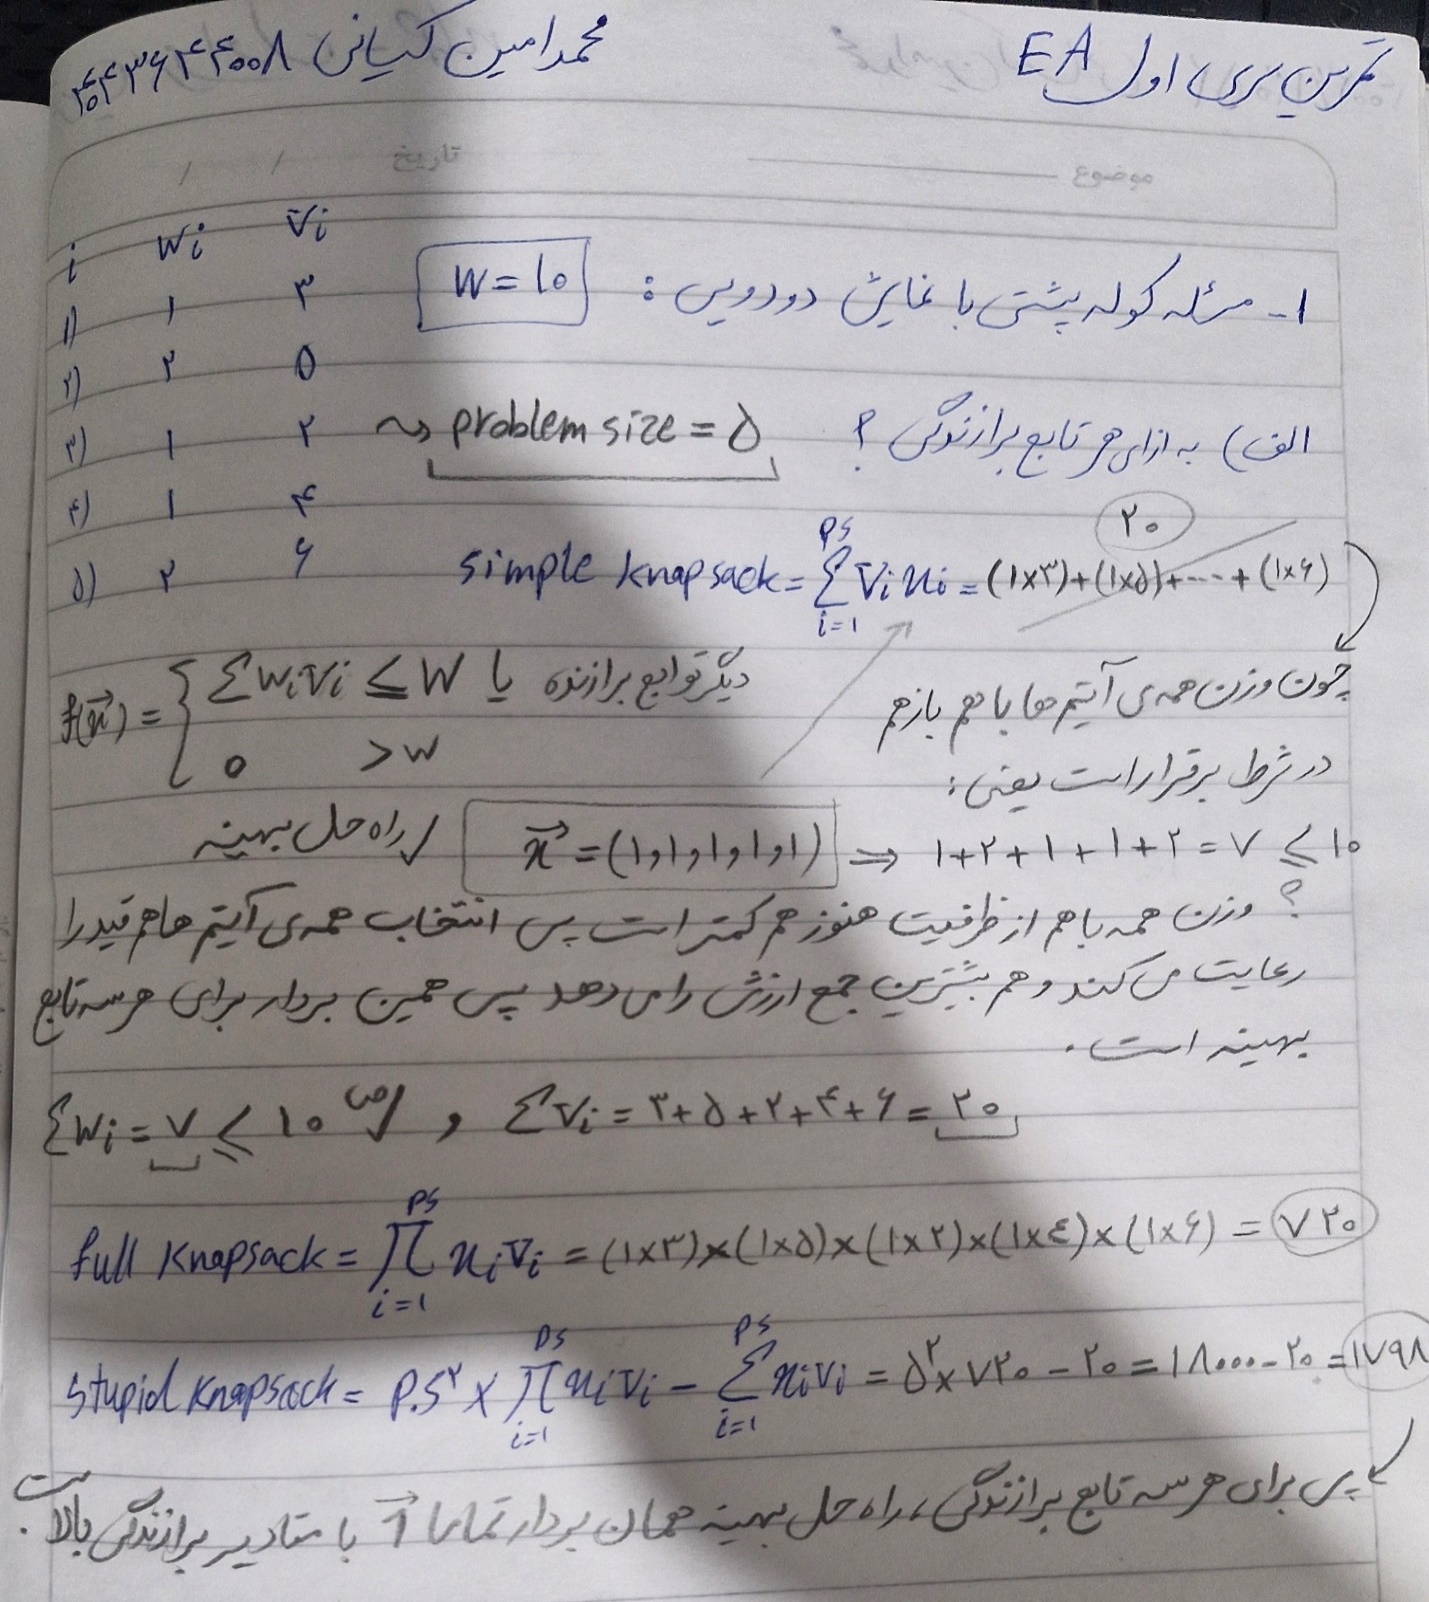 تمرین سری اول EA
محمدامین کیانی ۴۰۴۳۶۴۴۰۰۸
موضوع
تاریخ / /
i wi vi
۱) ۱ ۳
۲) ۲ ۵
۳) ۱ ۲
۴) ۱ ۴
۵) ۲ ۶
۱- مسئله کوله پشتی با نمایش دودویی : W = ۱۰
الف) به ازای هر تابع برازندگی ؟ problem size = ۵
۲۰
simple knapsack = Σ_{i=1}^{PS} vi xi = (۱×۳)+(۱×۵)+...+(۱×۶)
چون وزن همه‌ی آیتم ها با هم بازهم
در شرط برقرار است یعنی:
f(x⃗) = { Σwivi ≤ W یا دیگر توابع برازنده
0 >W
۱+۲+۱+۱+۲ = ۷ ≤ ۱۰ ⇐ x⃗ = (۱,۱,۱,۱,۱) راه حل بهینه
؟ وزن همه با هم از ظرفیت هنوز هم کمتر است پس انتخاب همه‌ی آیتم ها هم قید را
رعایت می‌کند و هم بیشترین جمع ارزش را می‌دهد پس همین بردار برای هر سه تابع
بهینه است.
Σwi = ۷ ≤ ۱۰ , Σvi = ۳+۵+۲+۴+۶ = ۲۰
full knapsack = Π_{i=1}^{PS} xi vi = (۱×۳)×(۱×۵)×(۱×۲)×(۱×٤)×(۱×۶) = ۷۲۰
stupid knapsack = P.S² × Π_{i=1}^{PS} xi vi − Σ_{i=1}^{PS} xi vi = ۵²×۷۲۰ − ۲۰ = ۱۸۰۰۰ − ۲۰ = ۱۷۹۸
پس برای هر سه تابع برازندگی، راه حل بهینه همان بردار تماما 1⃗ با مقادیر برازندگی بالاست.